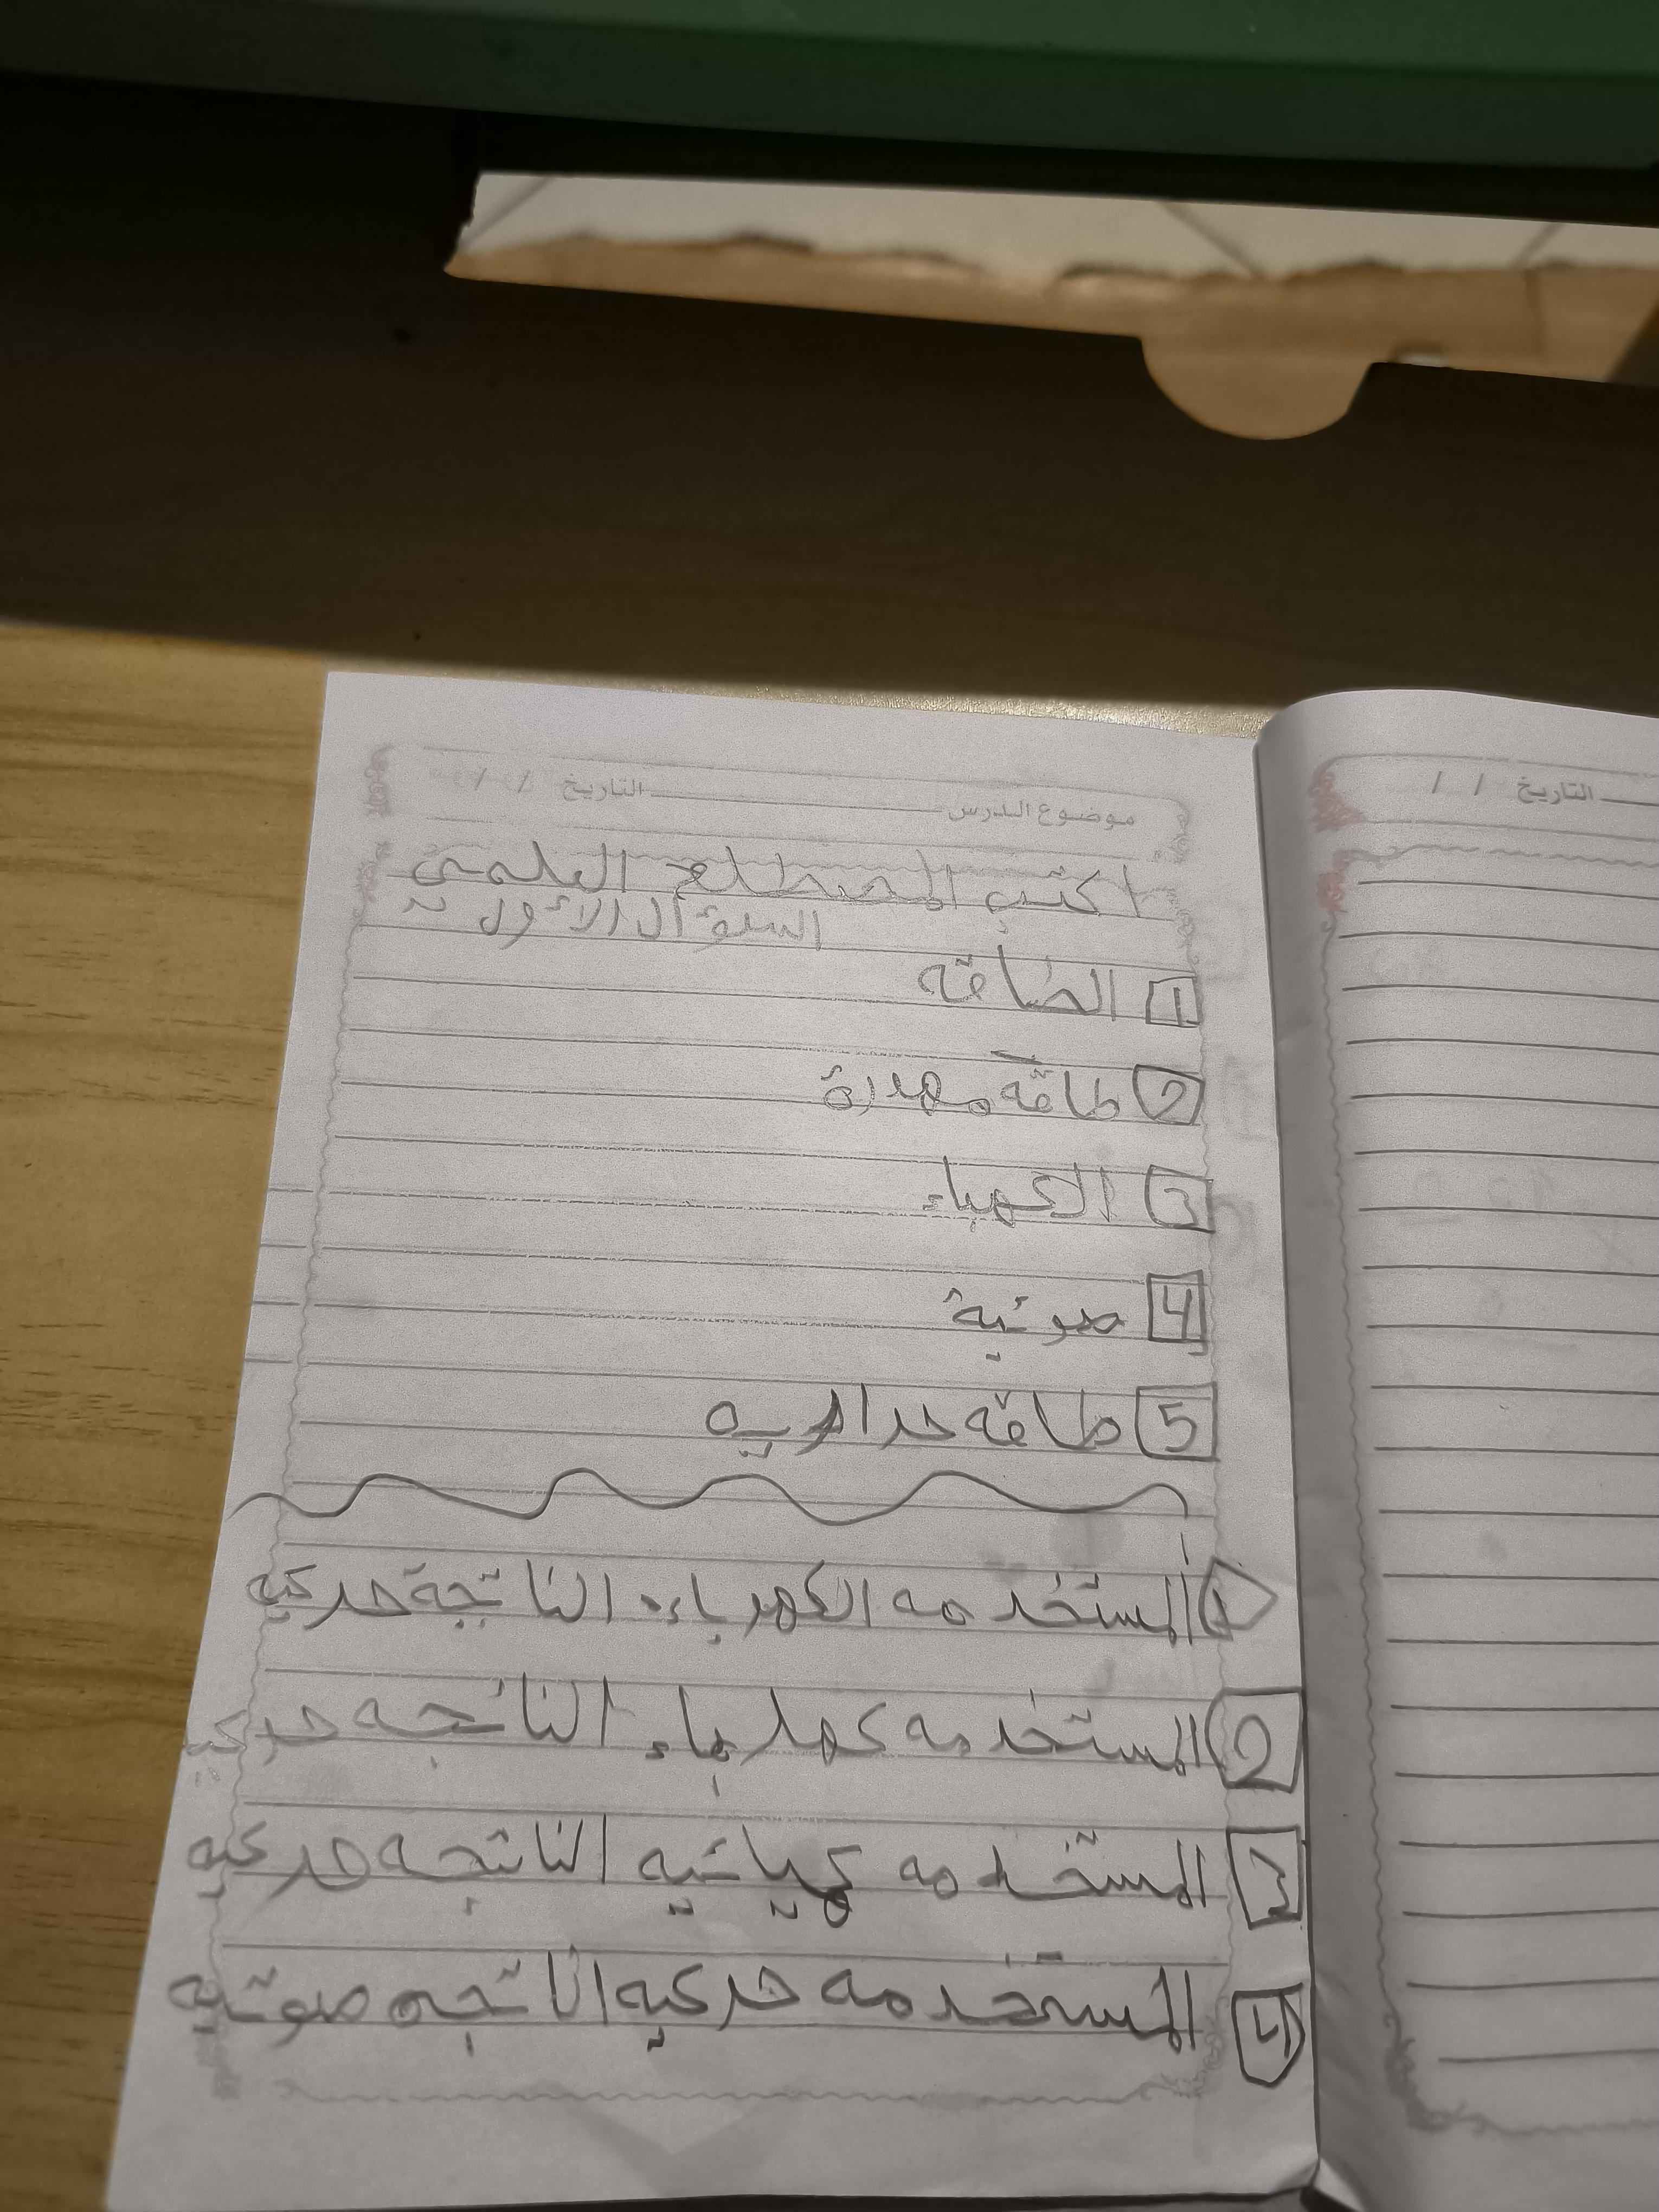 موضوع الدرس التاريخ / /
اكتب المصطلح العلمي
السؤال الأول
1 الطاقه
2 طاقه مهدرة
3 الكهباء
4 صوتية
5 طاقه حراريه
1 المستخدمه الكهرباء الناتجة حركيه
2 المستخدمه كهرباء الناتجه حركيه
3 المستخدمه كيميائيه الناتجه حركيه
4 المستخدمه حركيه الناتجه صوتيه
التاريخ / /